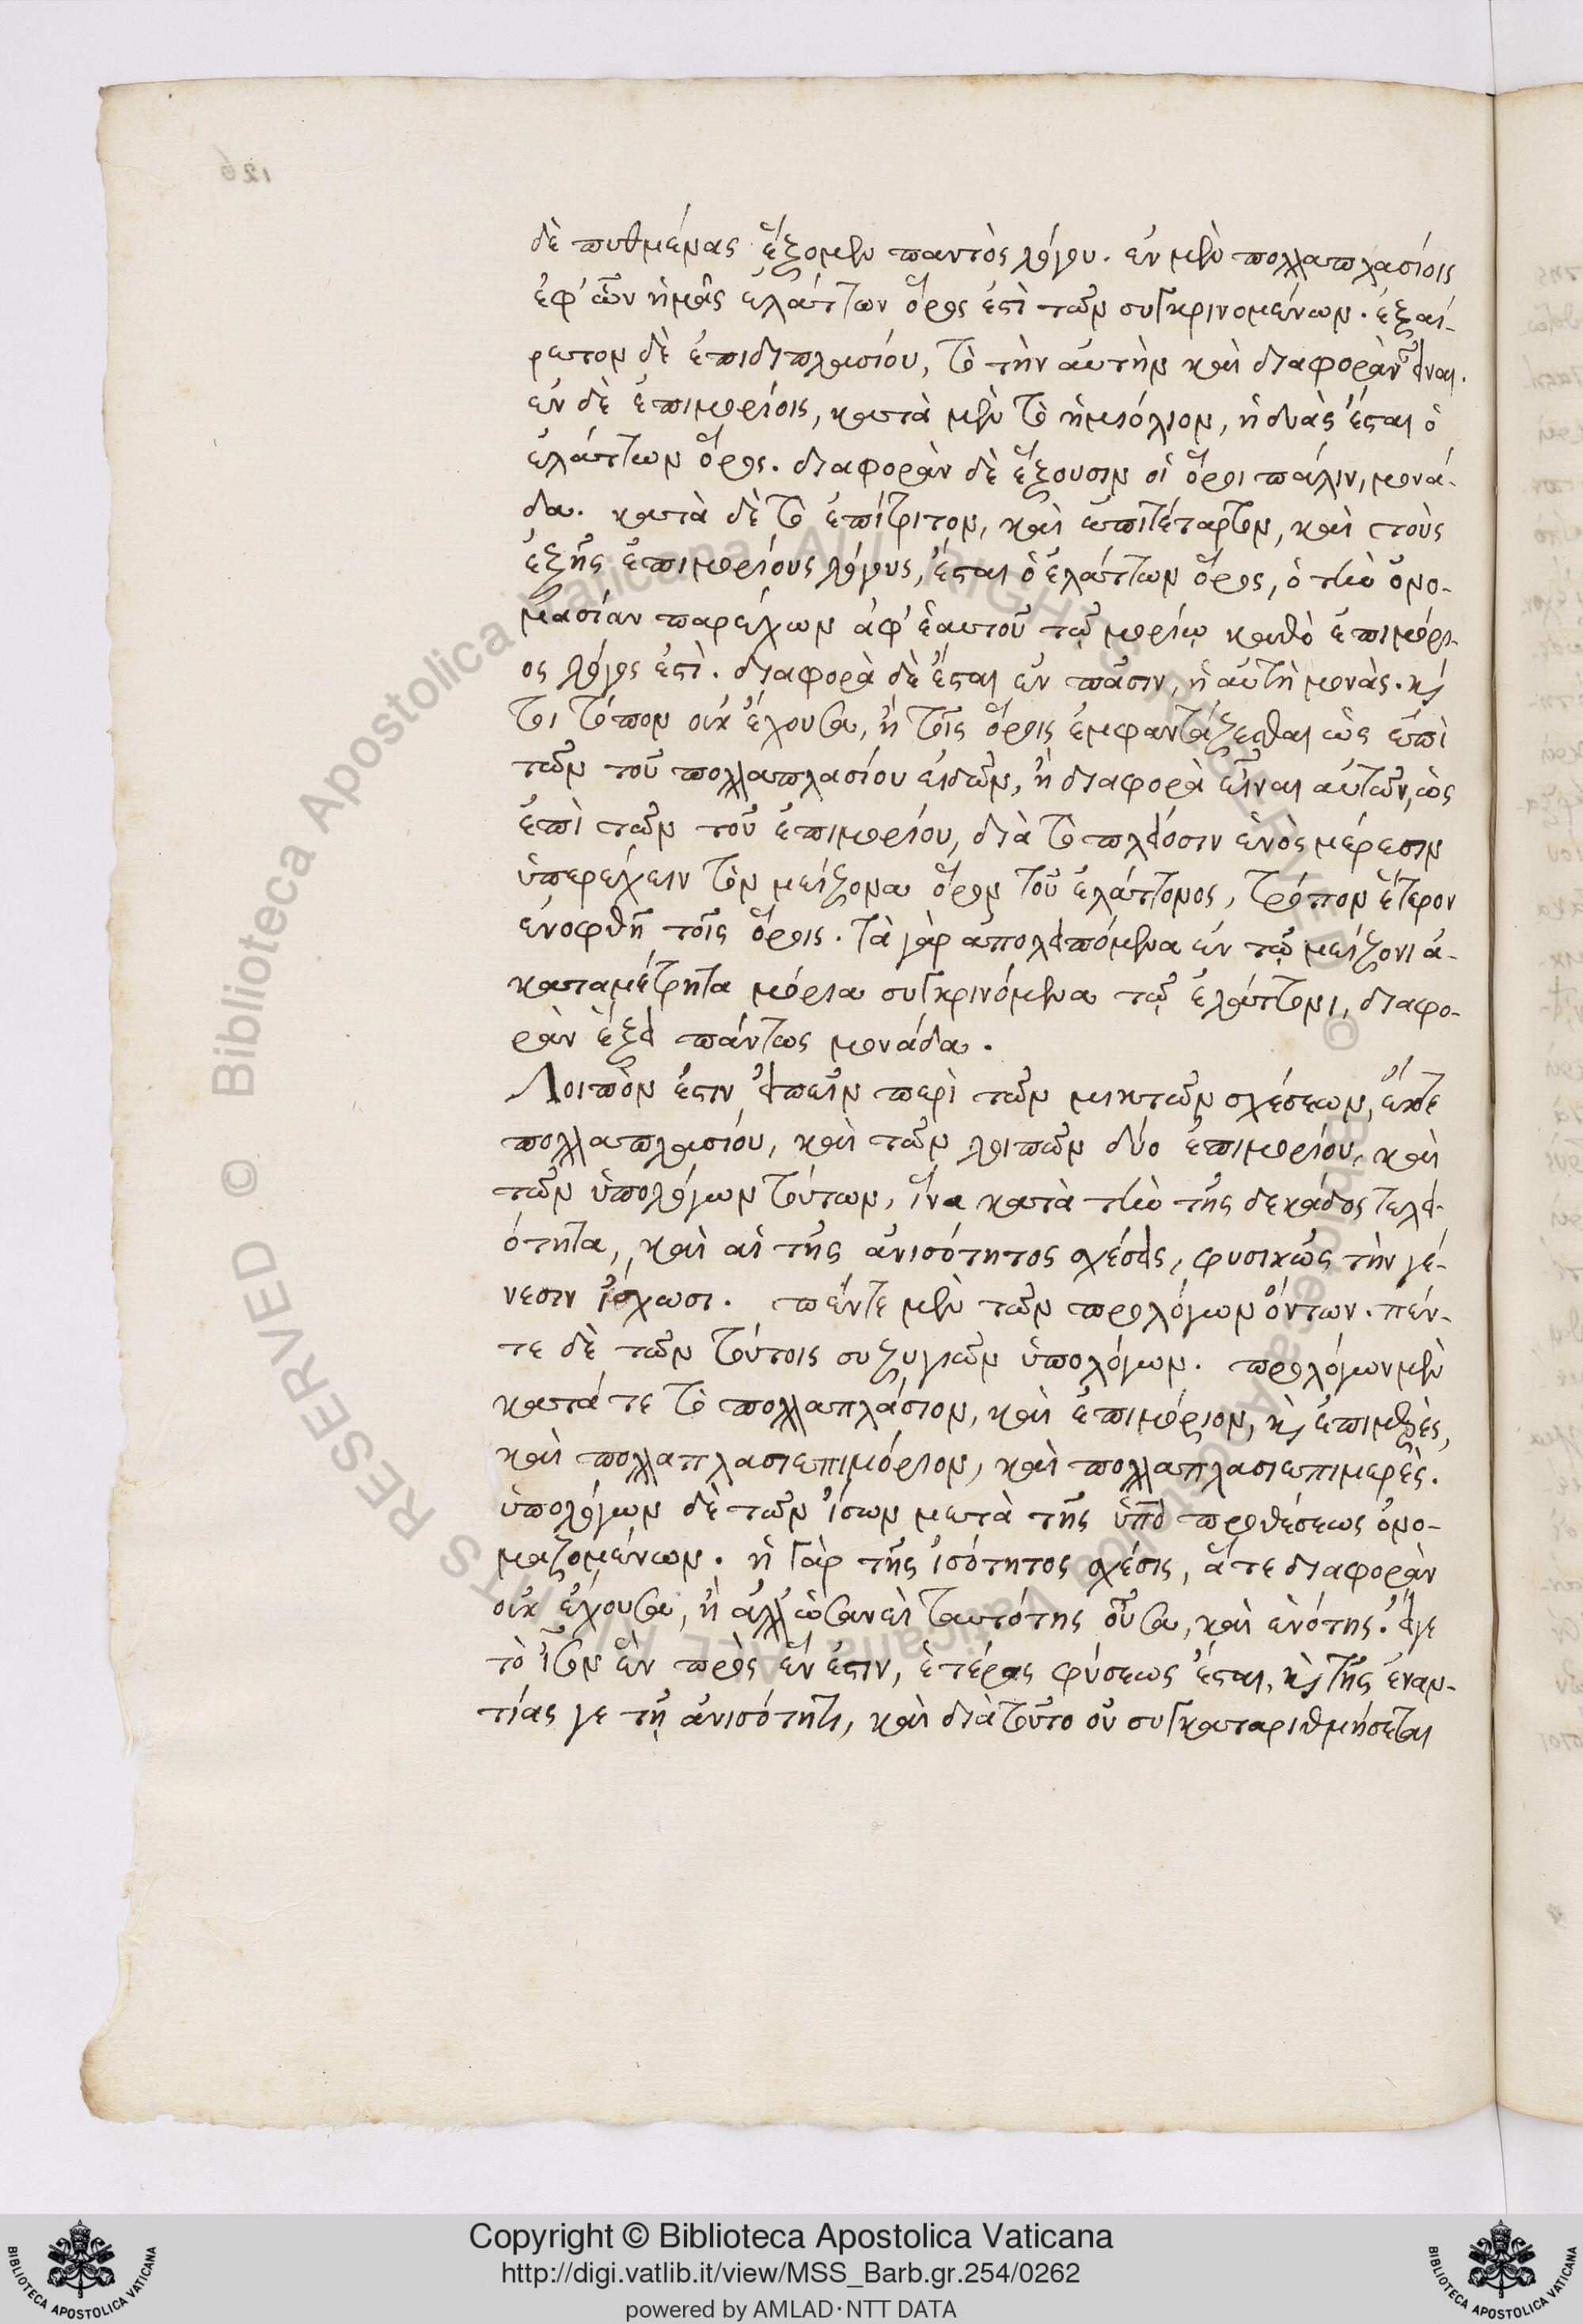 δὲ πυθμένας ἕξομεν παντὸς λόγου. ἐν μὲν πολλαπλασίοις
ἐφ' ὧν ἡμᾶς ἐλάττων ὅρος ἐστὶ τῶν συγκρινομένων. ἐξαί-
ρετον δὲ ἐπιδιπλασίου, τὸ τὴν αὐτὴν καὶ διαφορὰν εἶναι.
ἐν δὲ ἐπιμορίοις, κατὰ μὲν τὸ ἡμιόλιον, ἡ δυὰς ἔσται ὁ
ἐλάττων ὅρος. διαφορὰν δὲ ἕξουσιν οἱ ὅροι πάλιν, μονά-
δα. κατὰ δὲ τὸ ἐπίτριτον, καὶ ἐπιτέταρτον, καὶ τοὺς
ἑξῆς ἐπιμορίους λόγους, ἔσται ὁ ἐλάττων ὅρος, ὁ τὴν ὀνο-
μασίαν παρέχων ἀφ' ἑαυτοῦ τῷ μορίῳ καθὸ ἐπιμόρι-
ος λόγος ἐστὶ. διαφορὰ δὲ ἔσται ἐν πᾶσιν, ἡ αὐτὴ μονὰς. καὶ
τι τόπον οὐκ ἔχουσα, ἢ τοῖς ὅροις ἐμφαντάζεσθαι ὡς ἐπὶ
τῶν τοῦ πολλαπλασίου εἰδῶν, ἢ διαφορὰ εἶναι αὐτῶν, ὡς
ἐπὶ τῶν τοῦ ἐπιμορίου, διὰ τὸ πλείοσιν ἑνὸς μέρεσιν
ὑπερέχειν τὸν μείζονα ὅρον τοῦ ἐλάττονος, τρόπον ἕτερον
ἐνοφθῇ τοῖς ὅροις. τὰ γὰρ ἀπολειπόμενα ἐν τῷ μείζονι ἀ-
καταμέτρητα μόρια συγκρινόμενα τῷ ἐλάττονι, διαφο-
ρὰν ἕξει πάντως μονάδα.
Λοιπὸν ἐστιν εἰπεῖν περὶ τῶν μικτῶν σχέσεων, ἔκ τε
πολλαπλασίου, καὶ τῶν λοιπῶν δύο ἐπιμορίου, καὶ
τῶν ὑπολόγων τούτων, ἵνα κατὰ τὴν τῆς δεκάδος τελει-
ότητα, καὶ αἱ τῆς ἀνισότητος σχέσεις, φυσικῶς τὴν γέ-
νεσιν ἴσχωσι. πέντε μὲν τῶν προλόγων ὄντων. πέν-
τε δὲ τῶν τούτοις συζυγιῶν ὑπολόγων. προλόγων μὲν
κατά τε τὸ πολλαπλάσιον, καὶ ἐπιμόριον, καὶ ἐπιμερὲς,
καὶ πολλαπλασιεπιμόριον, καὶ πολλαπλασιεπιμερὲς.
ὑπολόγων δὲ τῶν ἴσων μετὰ τῆς ὑπὸ προθέσεως ὀνο-
μαζομένων. ἡ γὰρ τῆς ἰσότητος σχέσις, ἅτε διαφορὰν
οὐκ ἔχουσα, ἢ ἀλλ' ὡσανεὶ ταυτότης οὖσα, καὶ ἑνότης. εἴγε
τὸ ἴσον ἓν πρὸς ἓν ἐστιν, ἑτέρας φύσεως ἔσται, καὶ τῆς ἐναν-
τίας γε τῇ ἀνισότητι, καὶ διὰ τοῦτο οὐ συγκαταριθμήσεται
126
Biblioteca Apostolica Vaticana ALL RIGHTS RESERVED ©
Copyright © Biblioteca Apostolica Vaticana
http://digi.vatlib.it/view/MSS_Barb.gr.254/0262
powered by AMLAD·NTT DATA
BIBLIOTECA APOSTOLICA VATICANA
BIBLIOTECA APOSTOLICA VATICANA